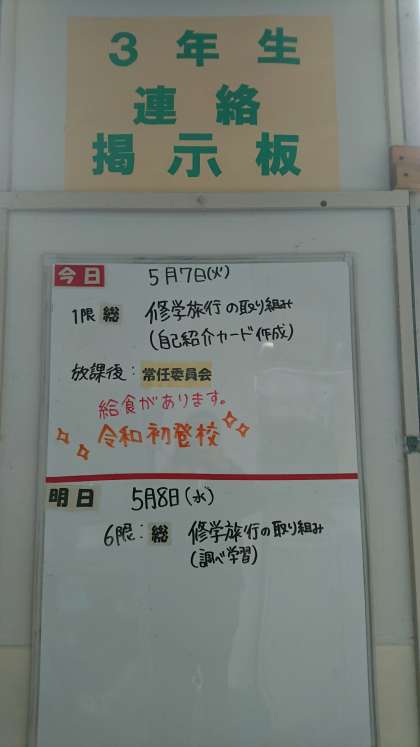 3年生
連絡
掲示板
今日 5月7日(火)
1限 総 修学旅行の取り組み
(自己紹介カード作成)
放課後: 常任委員会
給食があります。
令和初登校
明日 5月8日(水)
6限: 総 修学旅行の取り組み
(調べ学習)